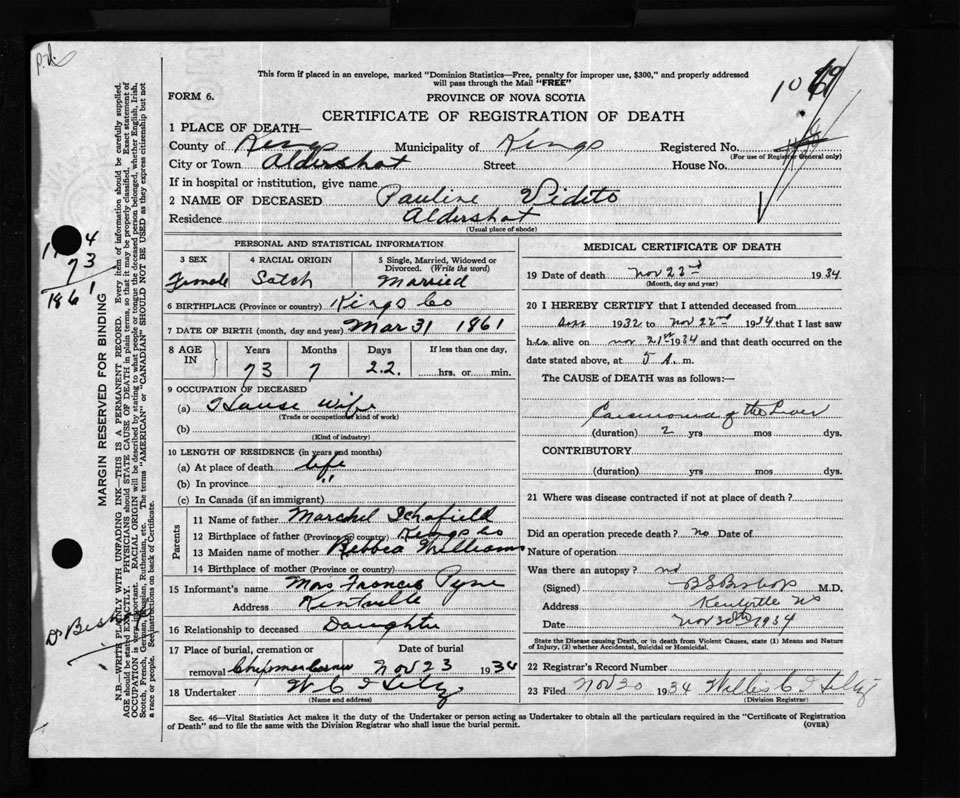 This form if placed in an envelope, marked "Dominion Statistics—Free, penalty for improper use, $300," and properly addressed
will pass through the Mail "FREE"
FORM 6.
PROVINCE OF NOVA SCOTIA
CERTIFICATE OF REGISTRATION OF DEATH
1 PLACE OF DEATH—
County of Kings Municipality of Kings Registered No.
(For use of Registrar General only)
City or Town Aldershot Street House No.
If in hospital or institution, give name
2 NAME OF DECEASED Pauline Vidito
Residence Aldershot
(Usual place of abode)
PERSONAL AND STATISTICAL INFORMATION
3 SEX 4 RACIAL ORIGIN 5 Single, Married, Widowed or Divorced. (Write the word)
Female Scotch Married
6 BIRTHPLACE (Province or country) Kings Co
7 DATE OF BIRTH (month, day and year) Mar 31 1861
8 AGE IN Years Months Days If less than one day,
73 7 22 hrs. or min.
9 OCCUPATION OF DECEASED
(a) House Wife
(Trade or occupation or kind of work)
(b)
(Kind of industry)
10 LENGTH OF RESIDENCE (in years and months)
(a) At place of death life
(b) In province "
(c) In Canada (if an immigrant)
Parents
11 Name of father Schofield
12 Birthplace of father (Province or country) Kings Co
13 Maiden name of mother Williams
14 Birthplace of mother (Province or country)
15 Informant's name Mrs Francis Pyne
Address Kentville
16 Relationship to deceased Daughter
17 Place of burial, cremation or removal Date of burial
Chipman Corner Nov 23 1934
18 Undertaker W C
(Name and address)
MEDICAL CERTIFICATE OF DEATH
19 Date of death Nov 22nd 1934
(Month, day and year)
20 I HEREBY CERTIFY that I attended deceased from
1932 to Nov 22nd 1934 that I last saw
h alive on Nov 21st 1934 and that death occurred on the
date stated above, at 5 A. m.
The CAUSE of DEATH was as follows:—
Carcinoma of the Liver
(duration) 2 yrs mos dys.
CONTRIBUTORY
(duration) yrs mos dys.
21 Where was disease contracted if not at place of death?
Did an operation precede death? no Date of
Nature of operation
Was there an autopsy? no
(Signed) B S Bishop M.D.
Address Kentville NS
Date Nov 30th 1934
State the Disease causing Death, or in death from Violent Causes, state (1) Means and Nature
of Injury, (2) whether Accidental, Suicidal or Homicidal.
22 Registrar's Record Number
23 Filed Nov 30 1934 Willis C
(Division Registrar)
Sec. 46—Vital Statistics Act makes it the duty of the Undertaker or person acting as Undertaker to obtain all the particulars required in the "Certificate of Registration
of Death" and to file the same with the Division Registrar who shall issue the burial permit.
(OVER)
MARGIN RESERVED FOR BINDING
N.B.—WRITE PLAINLY WITH UNFADING INK—THIS IS A PERMANENT RECORD. Every item of information should be carefully supplied.
AGE should be stated EXACTLY. PHYSICIANS should STATE CAUSE OF DEATH in plain terms, so that it may be properly classified. Exact statement of
OCCUPATION is very important. RACIAL ORIGIN will be described by stating to what people or tongue the deceased person belonged, whether English, Irish,
Scotch, French, German, Norwegian, Ruthenian, etc. The terms "AMERICAN" or "CANADIAN" SHOULD NOT BE USED as they express citizenship but not
a race or people. See instructions on back of Certificate.
73
1861
Dr Bishop